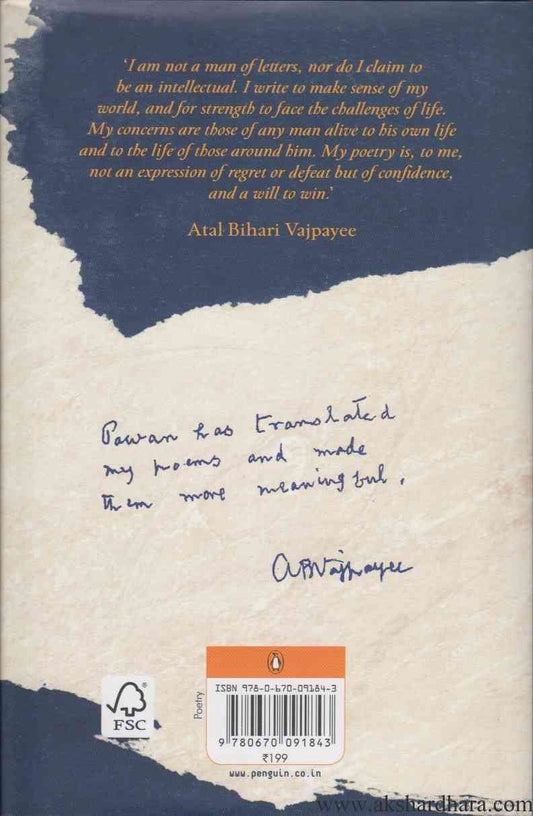 ‘I am not a man of letters, nor do I claim to
be an intellectual. I write to make sense of my
world, and for strength to face the challenges of life.
My concerns are those of any man alive to his own life
and to the life of those around him. My poetry is, to me,
not an expression of regret or defeat but of confidence,
and a will to win.’
Atal Bihari Vajpayee
Pawan has translated
my poems and made
them more meaningful.
ABVajpayee
Poetry
ISBN 978-0-670-09184-3
9 780670 091843
₹199
www.penguin.co.in
FSC®
www.akshardhara.com